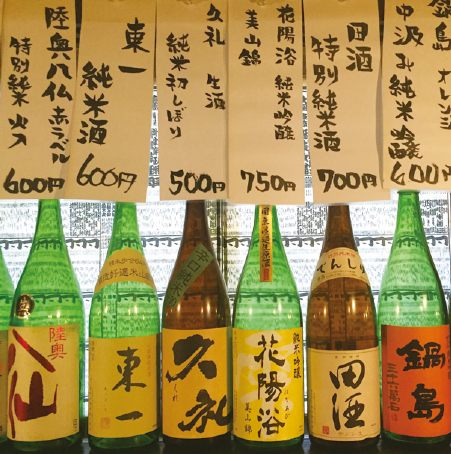 鍋島 オレンジ
中汲み純米吟醸
600円
田酒
特別純米酒
700円
花陽浴 純米吟醸
美山錦
750円
久礼 生酒
純米初しぼり
500円
東一
純米酒
600円
陸奥八仙 赤ラベル
特別純米 火入
600円
陸奥
八仙
東一
久礼
くれ
純米吟醸
花陽浴
はなあび
美山錦
でんしゅ
田酒
鍋島
三十六萬石